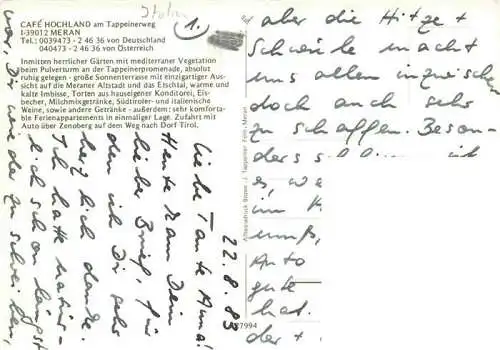 Italien
1.
CAFÉ HOCHLAND am Tappeinerweg
I-39012 MERAN
Tel.: 0039473 - 2 46 36 von Deutschland
040473 - 2 46 36 von Österreich
Inmitten herrlicher Gärten mit mediterraner Vegetation
beim Pulverturm an der Tappeinerpromenade, absolut
ruhig gelegen - große Sonnenterrasse mit einzigartiger Aus-
sicht auf die Meraner Altstadt und das Etschtal, warme und
kalte Imbisse, Torten aus hauseigener Konditorei, Eis-
becher, Milchmixgetränke, Südtiroler- und italienische
Weine, sowie andere Getränke - außerdem: sehr komforta-
ble Ferienappartements in einmaliger Lage. Zufahrt mit
Auto über Zenoberg auf dem Weg nach Dorf Tirol.
22.8.83
Liebe Tante Anna!
Heute kam Dein
lieber Brief, für
den ich Dir sehr
herzlich danke.
Ich hatte natür-
lich schon längst
vor, Dir wieder zu schreiben,
aber die Hitze +
Schwüle macht
uns allen inzwischen
doch auch sehr
zu schaffen. Beson-
ders
ich
es,
im
muß,
Auto
gute
hat.
der +
27994